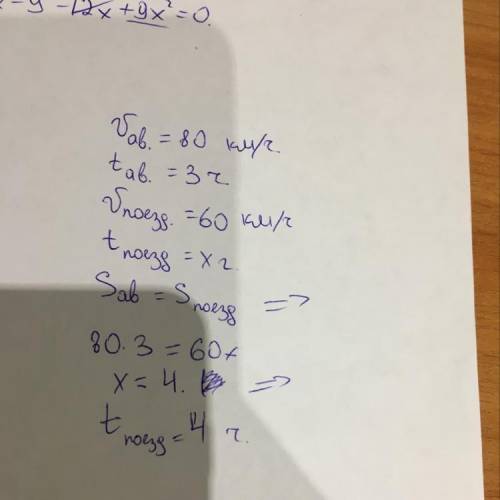 - 9 - 12x + 9x² = 0.
Vав. = 80 км/ч.
tав. = 3 ч.
Vпоезд. = 60 км/ч
tпоезд = x ч.
Sав = Sпоезд =>
80 · 3 = 60x
x = 4. =>
tпоезд = 4 ч.